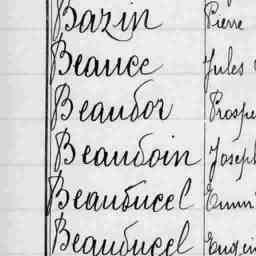 Bazin Pierre
Beauce Jules
Beaudor Prosper
Beaudoin Joseph
Beauducel Emm
Beauducel Eugèn